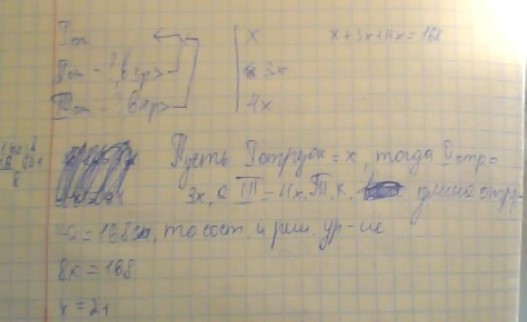 I от x x + 3x + 4x = 168
II от - ?, в 3 р > 3x
III от - ?, в 4 р > 4x
Пусть I отрезок = x, тогда II отр =
3x, а III = 4x. Т.к. длина отрез
ка = 168 см, то сост. и реш. ур-ие
8x = 168
x = 21